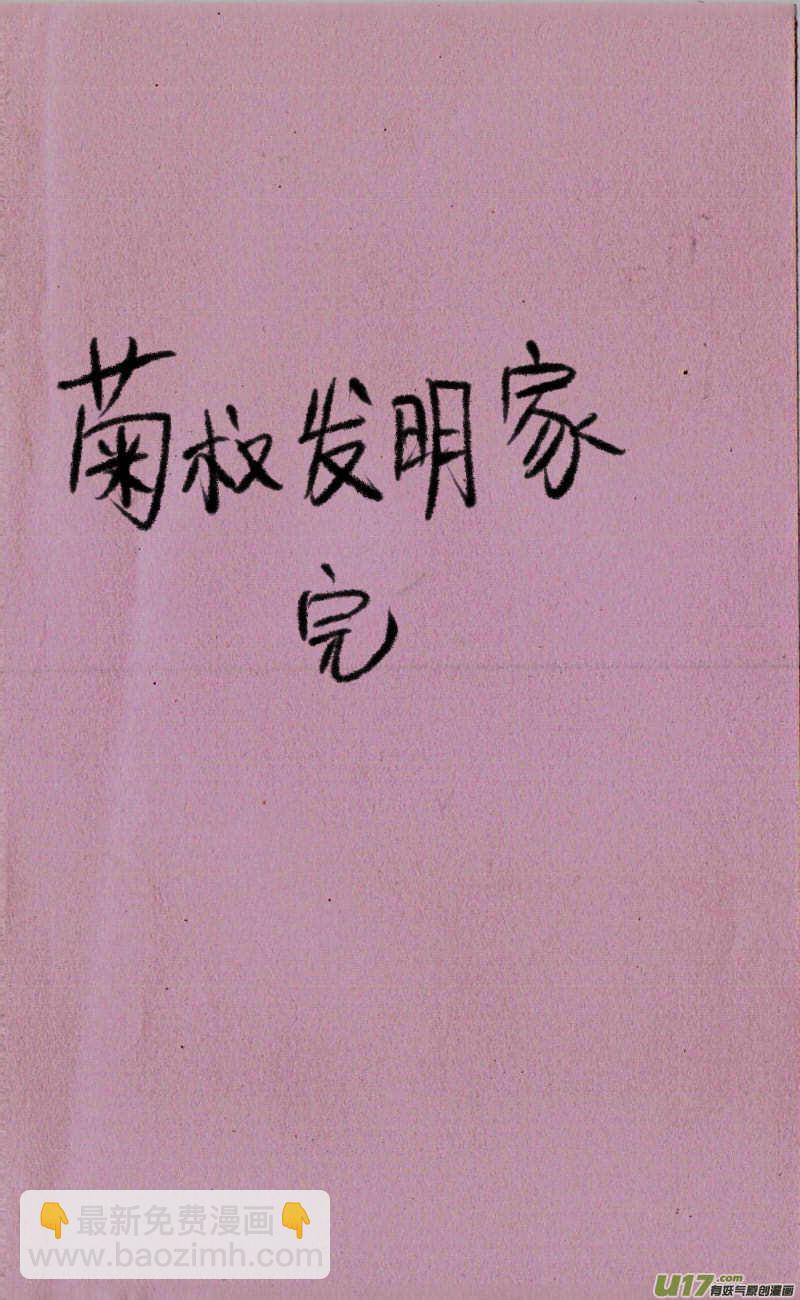 菊叔发明家
完
👇最新免费漫画👇
www.baozimh.com
U17.com
有妖气原创漫画